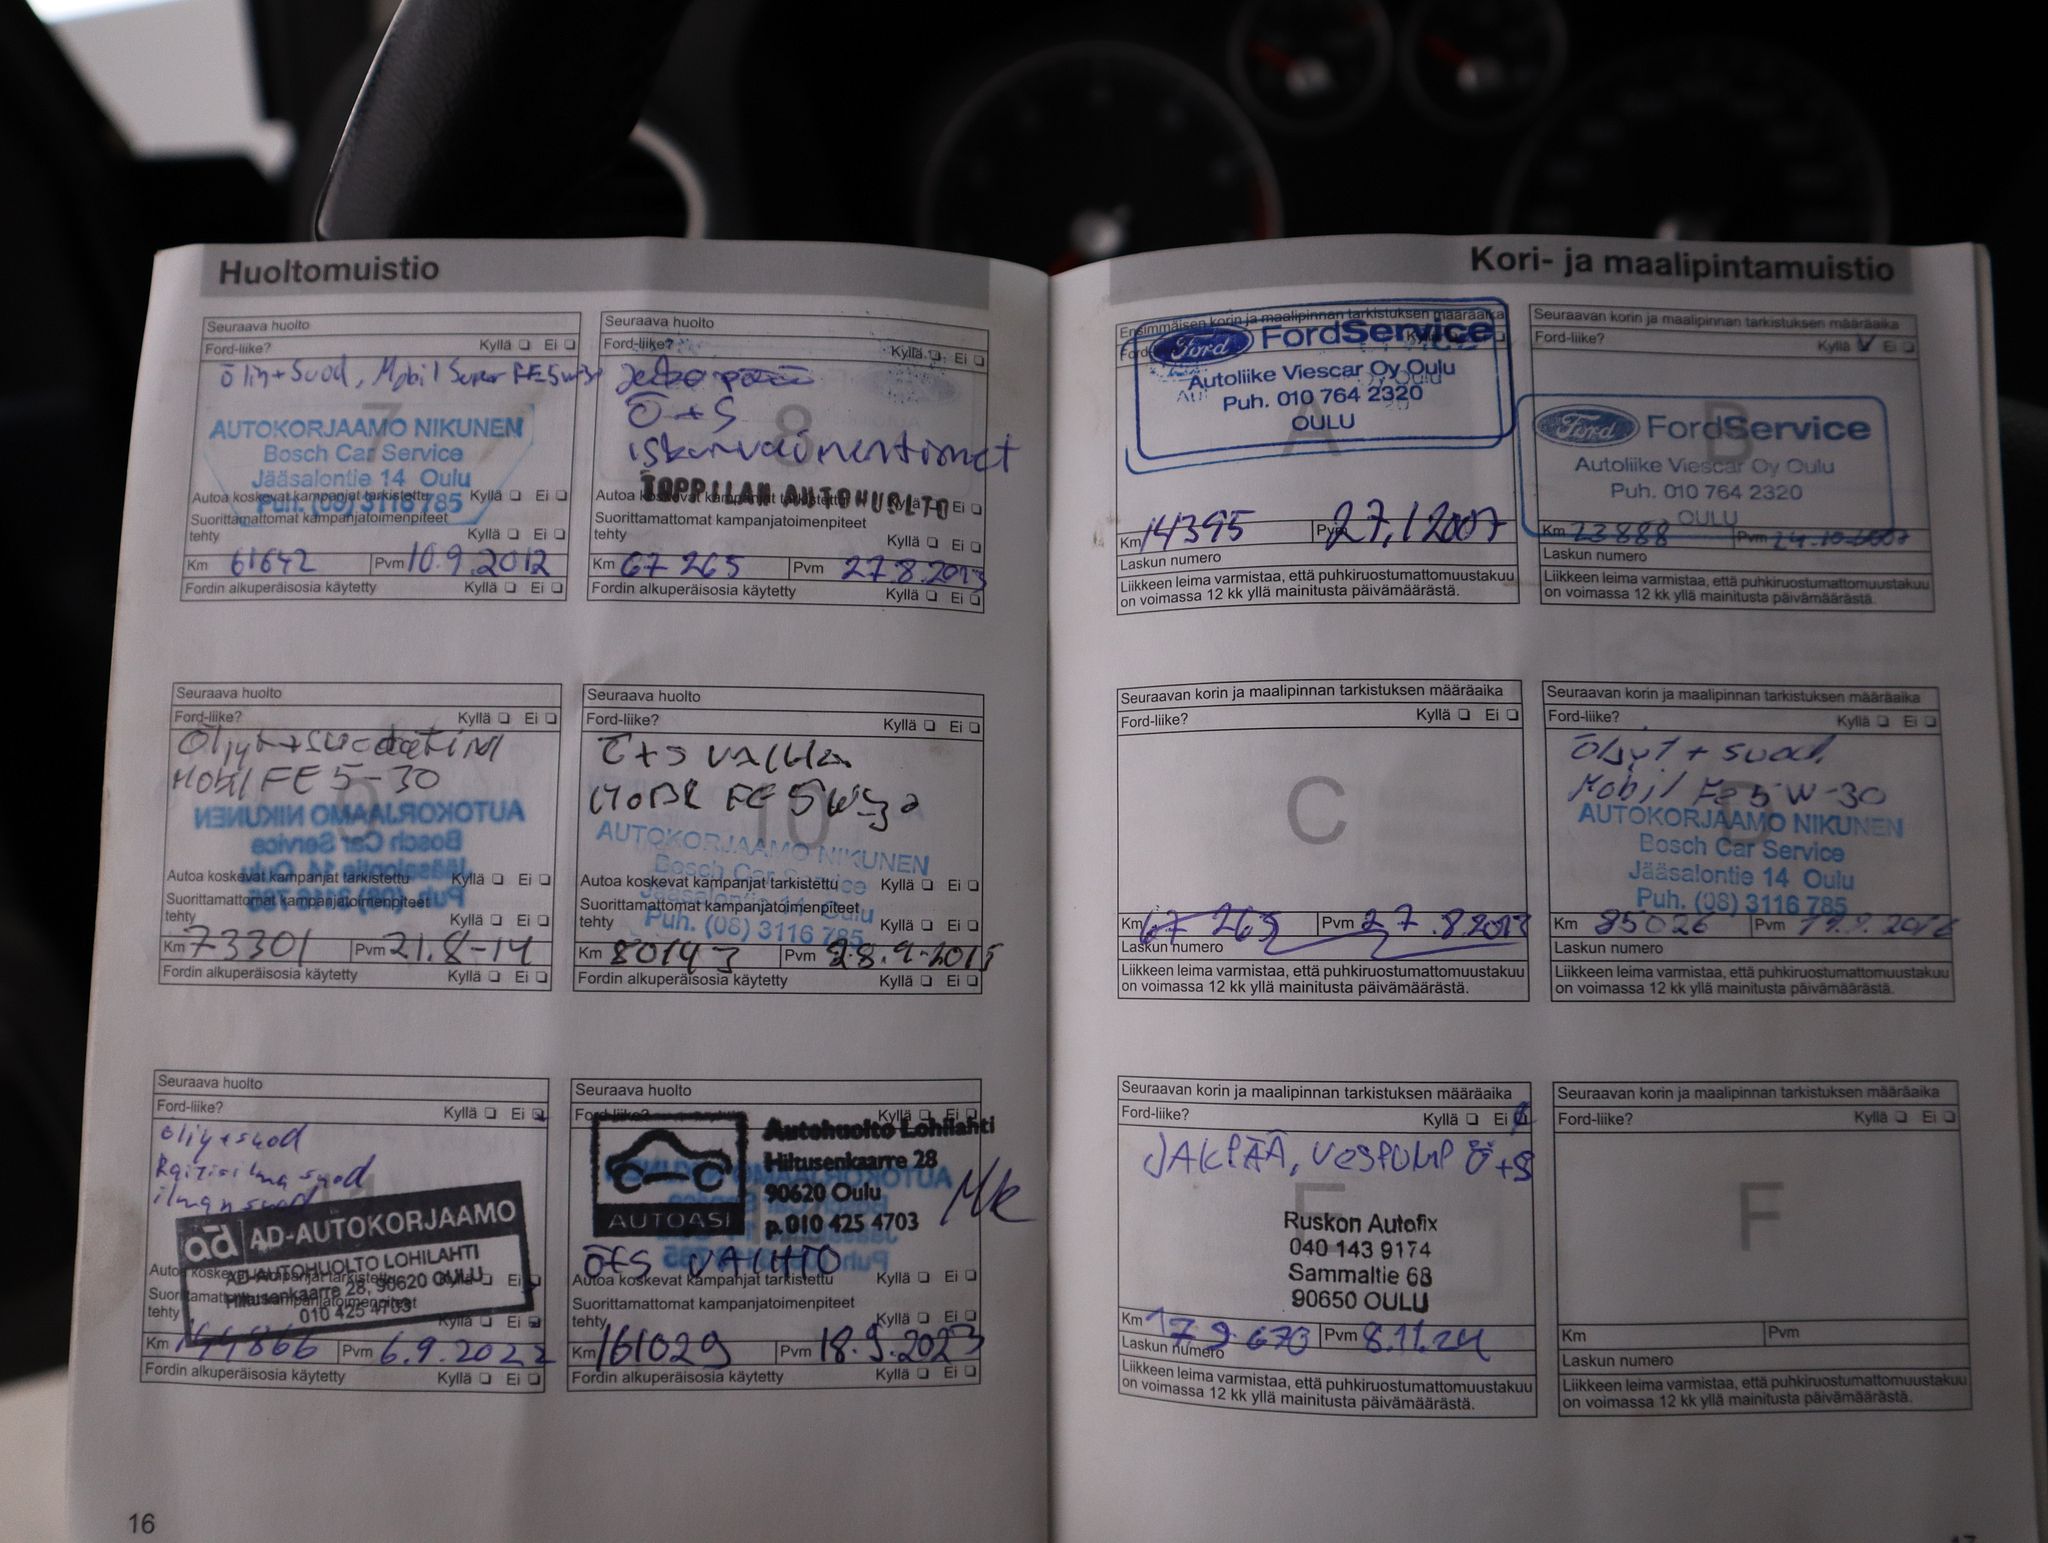 Huoltomuistio
Seuraava huolto
Ford-liike? Kyllä ❏ Ei ❏
Mobil Super FE5w30
7
AUTOKORJAAMO NIKUNEN
Bosch Car Service
Jääsalontie 14 Oulu
Puh. (08) 3116 785
Autoa koskevat kampanjat tarkistettu Kyllä ❏ Ei ❏
Suorittamattomat kampanjatoimenpiteet
tehty Kyllä ❏ Ei ❏
Km 61642 Pvm 10.9.2012
Fordin alkuperäisosia käytetty Kyllä ❏ Ei ❏
Seuraava huolto
Ford-liike? Kyllä ❏ Ei ❏
Ö+S
iskunvaimentimet
8
TOPPILAN AUTOHUOLTO
Autoa koskevat kampanjat tarkistettu Kyllä ❏ Ei ❏
Suorittamattomat kampanjatoimenpiteet
tehty Kyllä ❏ Ei ❏
Km 67 265 Pvm 27.8.2013
Fordin alkuperäisosia käytetty Kyllä ❏ Ei ❏
Seuraava huolto
Ford-liike? Kyllä ❏ Ei ❏
Mobil FE 5-30
AUTOKORJAAMO NIKUNEN
Bosch Car Service
Jääsalontie 14 Oulu
Puh. (08) 3116 785
Autoa koskevat kampanjat tarkistettu Kyllä ❏ Ei ❏
Suorittamattomat kampanjatoimenpiteet
tehty Kyllä ❏ Ei ❏
Km 73301 Pvm 21.8-14
Fordin alkuperäisosia käytetty Kyllä ❏ Ei ❏
Seuraava huolto
Ford-liike? Kyllä ❏ Ei ❏
Ö+S
FE 5W30
10
AUTOKORJAAMO NIKUNEN
Bosch Car Service
Jääsalontie 14 Oulu
Puh. (08) 3116 785
Autoa koskevat kampanjat tarkistettu Kyllä ❏ Ei ❏
Suorittamattomat kampanjatoimenpiteet
tehty Kyllä ❏ Ei ❏
Km 80143 Pvm
Fordin alkuperäisosia käytetty Kyllä ❏ Ei ❏
Seuraava huolto
Ford-liike? Kyllä ❏ Ei ❏
öljy+suod
Raitisilmasuod
ilmansuod
ad AD-AUTOKORJAAMO
AD-AUTOHUOLTO LOHILAHTI
Hiltusenkaarre 28, 90620 OULU
010 425 4703
Autoa koskevat kampanjat tarkistettu Kyllä ❏ Ei ❏
Suorittamattomat kampanjatoimenpiteet
tehty Kyllä ❏ Ei ❏
Km Pvm 6.9.2022
Fordin alkuperäisosia käytetty Kyllä ❏ Ei ❏
Seuraava huolto
Ford-liike? Kyllä ❏ Ei ❏
AUTOASI
Autohuolto Lohilahti
Hiltusenkaarre 28
90620 Oulu
p. 010 425 4703
Ö+S VAIHTO
Autoa koskevat kampanjat tarkistettu Kyllä ❏ Ei ❏
Suorittamattomat kampanjatoimenpiteet
tehty Kyllä ❏ Ei ❏
Km 161029 Pvm 18.9.2023
Fordin alkuperäisosia käytetty Kyllä ❏ Ei ❏
16
Kori- ja maalipintamuistio
Ensimmäisen korin ja maalipinnan tarkistuksen määräaika
Ford FordService
Autoliike Viescar Oy Oulu
Puh. 010 764 2320
OULU
A
Km 14395 Pvm 27,1 2007
Laskun numero
Liikkeen leima varmistaa, että puhkiruostumattomuustakuu
on voimassa 12 kk yllä mainitusta päivämäärästä.
Seuraavan korin ja maalipinnan tarkistuksen määräaika
Ford-liike? Kyllä Ei ❏
B
Ford FordService
Autoliike Viescar Oy Oulu
Puh. 010 764 2320
OULU
Km 23888 Pvm 24.10.2007
Laskun numero
Liikkeen leima varmistaa, että puhkiruostumattomuustakuu
on voimassa 12 kk yllä mainitusta päivämäärästä.
Seuraavan korin ja maalipinnan tarkistuksen määräaika
Ford-liike? Kyllä ❏ Ei ❏
C
Km 67 265 Pvm 27.8.2013
Laskun numero
Liikkeen leima varmistaa, että puhkiruostumattomuustakuu
on voimassa 12 kk yllä mainitusta päivämäärästä.
Seuraavan korin ja maalipinnan tarkistuksen määräaika
Ford-liike? Kyllä ❏ Ei ❏
Öljyt + suod.
Mobil Fe 5W-30
AUTOKORJAAMO NIKUNEN
Bosch Car Service
Jääsalontie 14 Oulu
Puh. (08) 3116 785
Km 85026 Pvm
Laskun numero
Liikkeen leima varmistaa, että puhkiruostumattomuustakuu
on voimassa 12 kk yllä mainitusta päivämäärästä.
Seuraavan korin ja maalipinnan tarkistuksen määräaika
Ford-liike? Kyllä ❏ Ei ❏
JAKPÄÄ, VESPUMP Ö+S
E
Ruskon Autofix
040 143 9174
Sammaltie 68
90650 OULU
Km 179 670 Pvm 8.11.24
Laskun numero
Liikkeen leima varmistaa, että puhkiruostumattomuustakuu
on voimassa 12 kk yllä mainitusta päivämäärästä.
Seuraavan korin ja maalipinnan tarkistuksen määräaika
Ford-liike? Kyllä ❏ Ei ❏
F
Km Pvm
Laskun numero
Liikkeen leima varmistaa, että puhkiruostumattomuustakuu
on voimassa 12 kk yllä mainitusta päivämäärästä.